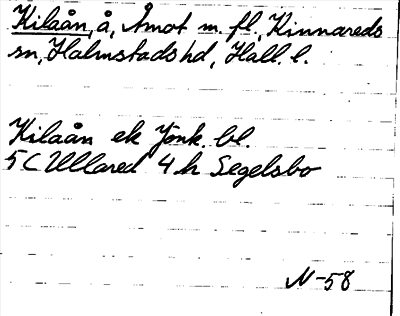 Kilaån, å, Åmot m. fl., Kinnareds
sn, Halmstads hd, Hall. l.
Kilaån ek Jönk. bl.
5C Ullared 4 h Segelsbo
N-58